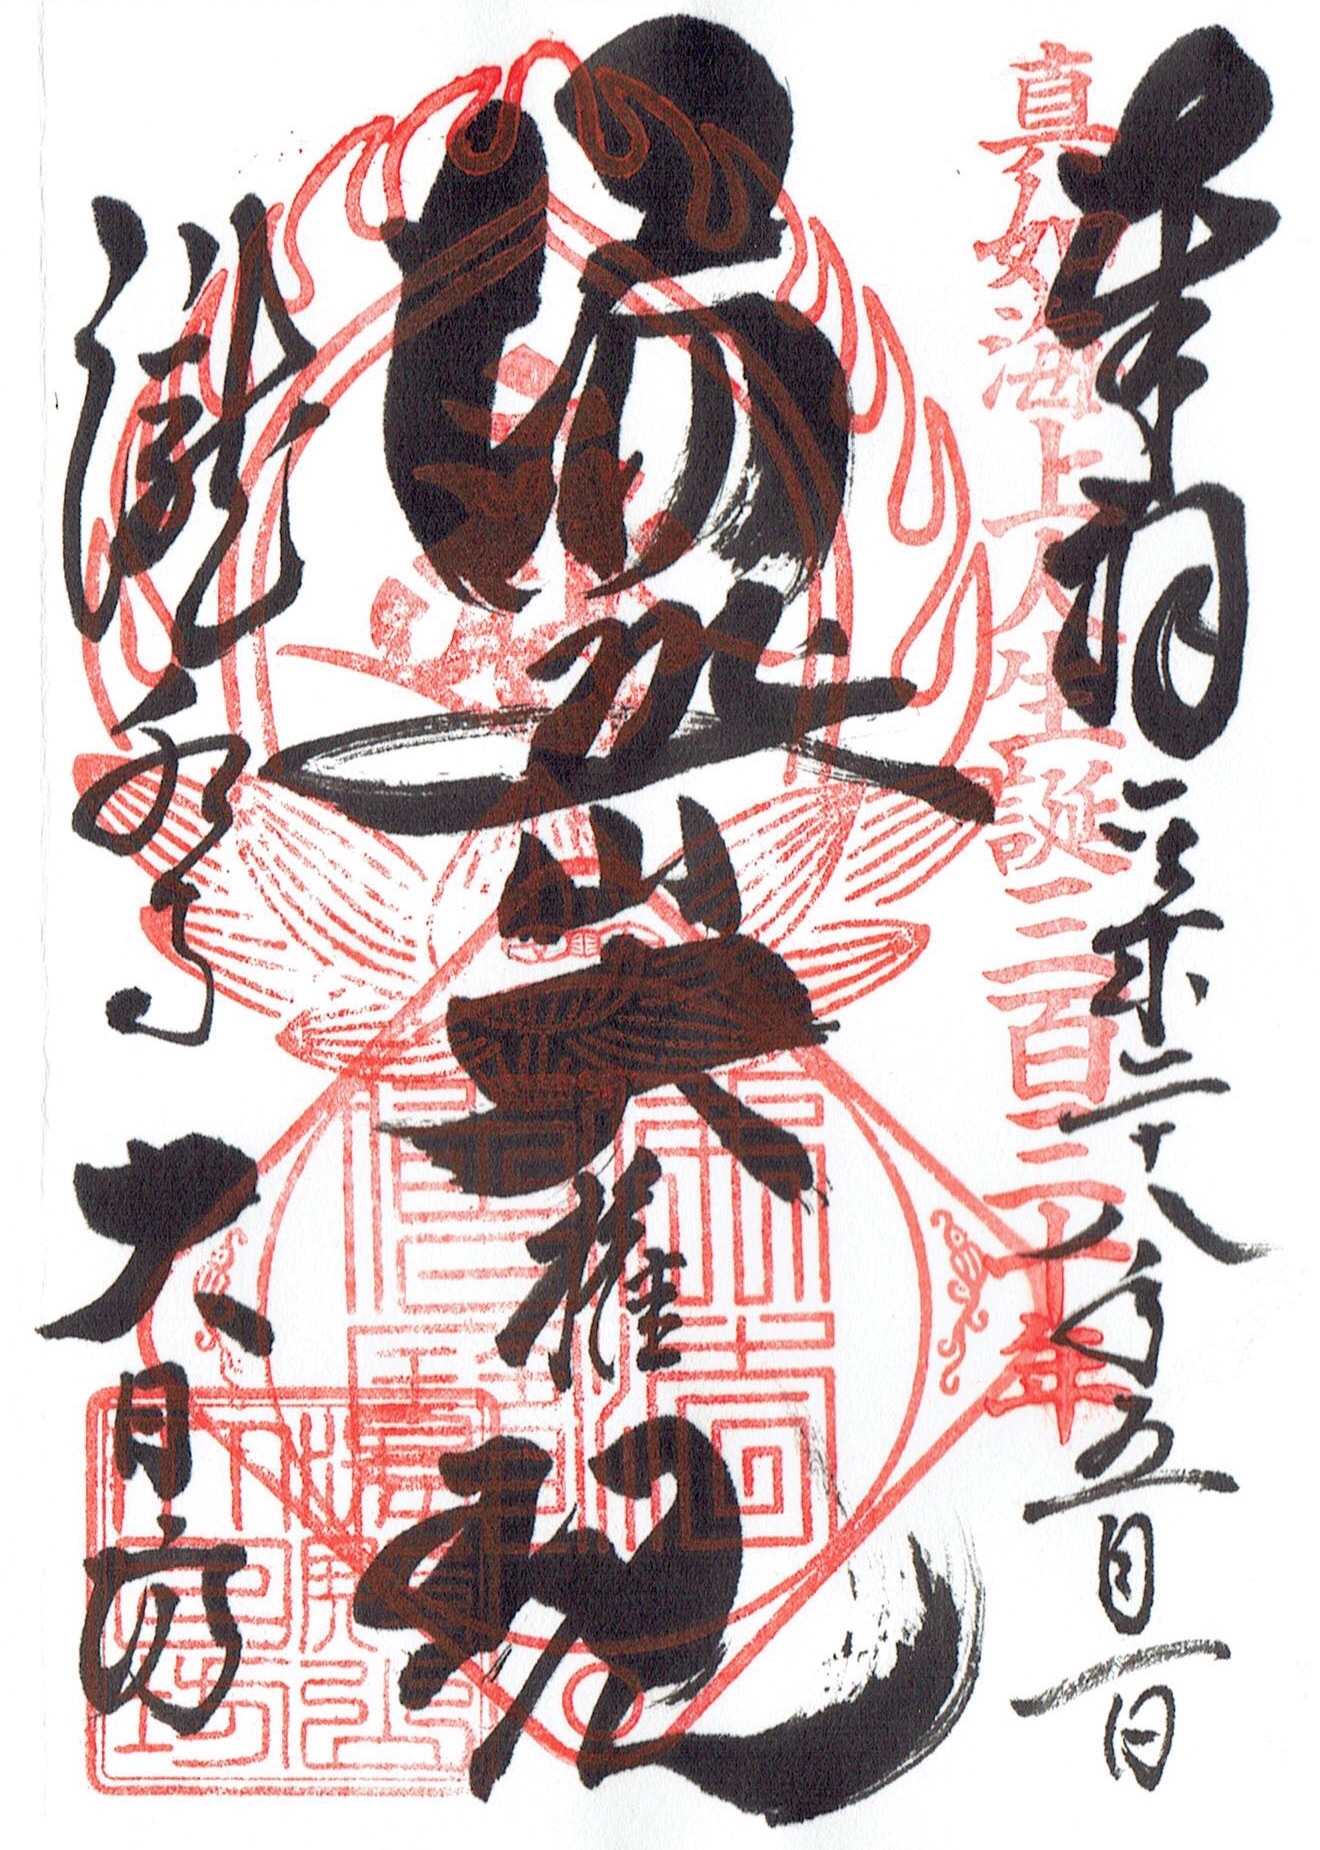 奉拝 平成二十八年五月一日
真如海上人生誕三百三十年
湯殿山大権現
瀧水寺大日坊